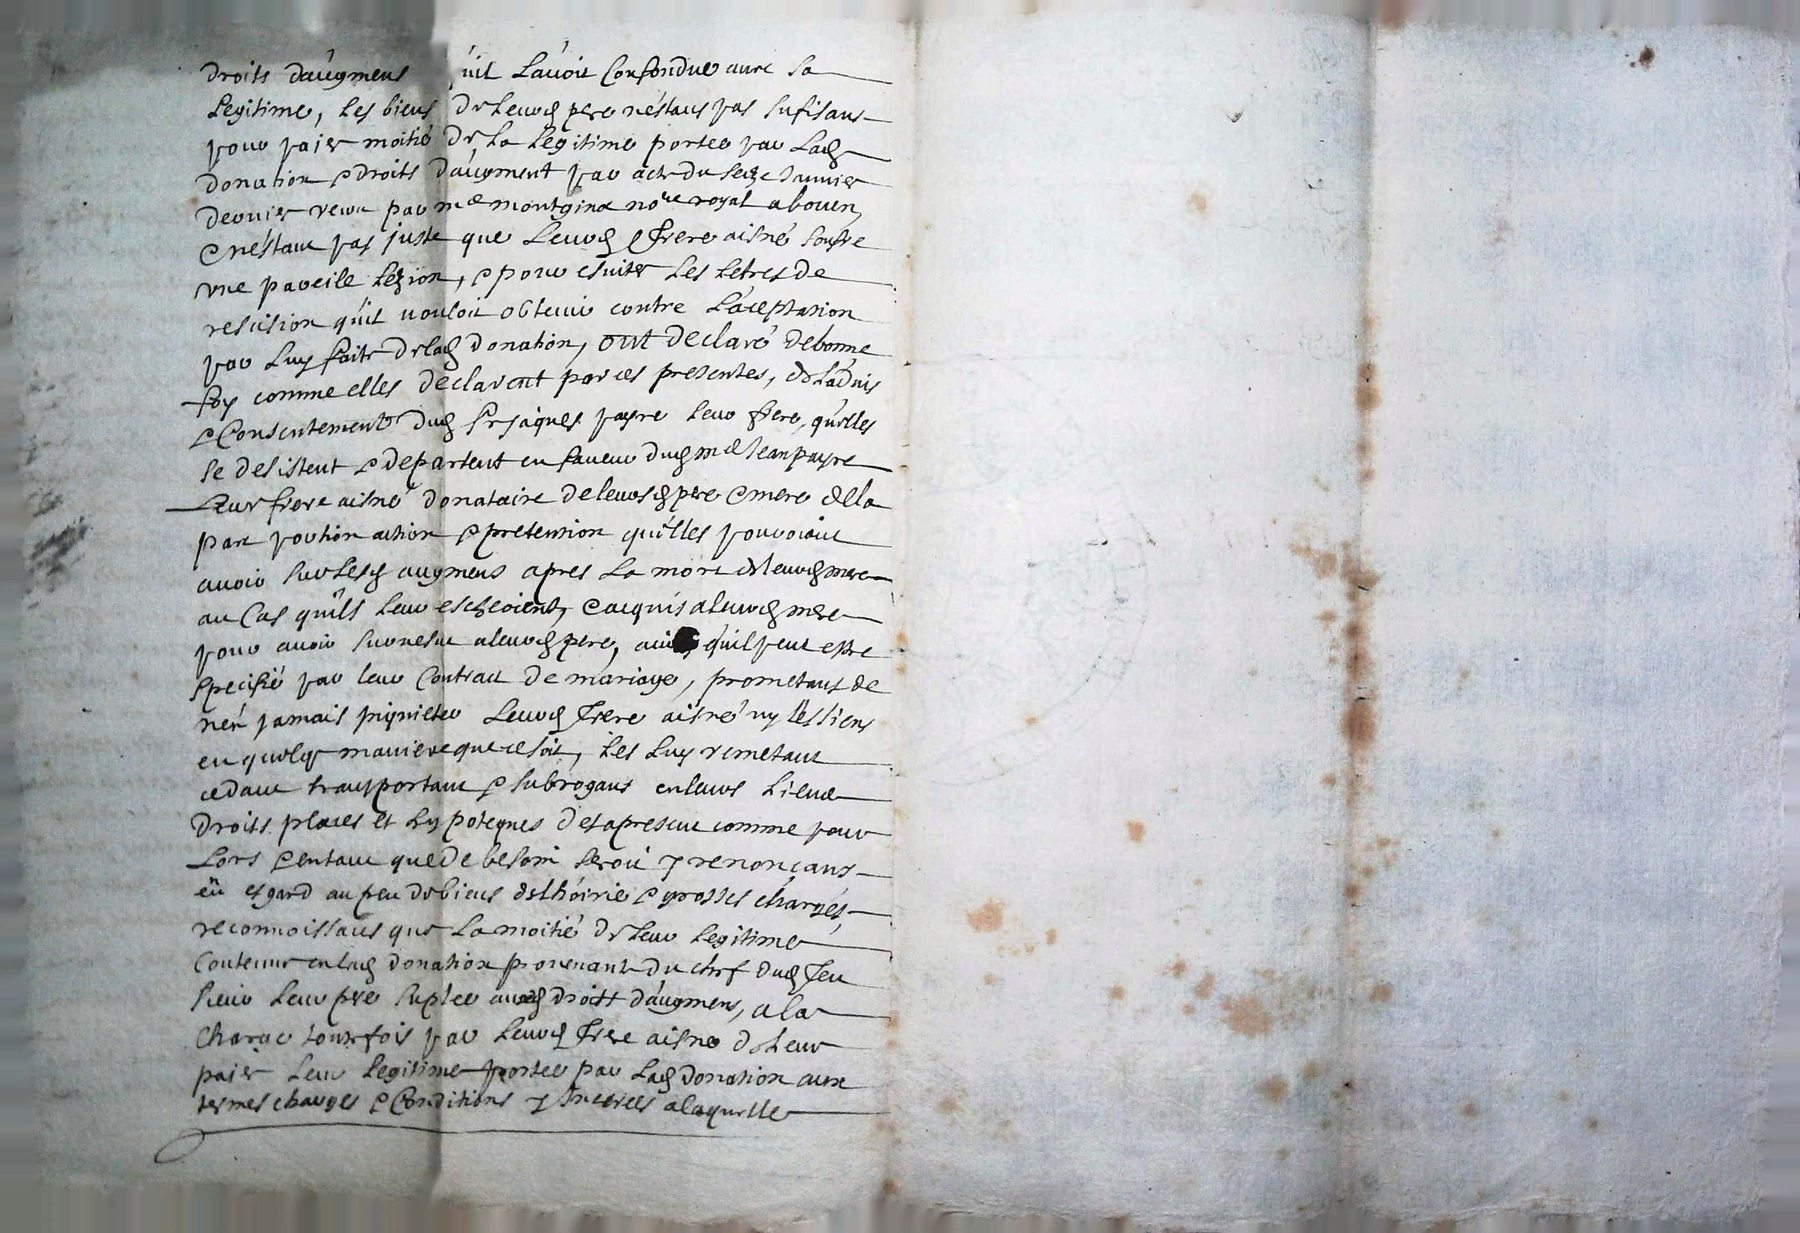 droits daugmens quil lavoit Confondue avec sa
Legitime, les biens de leurd pere nestans pas sufisans
pour paier moitié de la legitime portée par lad
donation e droits daugment par acte du seize Janvier
dernier receu par me montginoux nore royal a bouen
e nestant pas juste que leurd frere aisné soufre
une pareile lezion, e pour esviter les letres de
rescision quil vouloit obtenir contre lacceptation
par luy faite de lad donation, ont declaré de bonne
foy comme elles declarent par ces presentes, de ladvis
e Consentement dud sr jaques payre leur frere, quelles
se desistent e departent en faveur dud me Jean payre
Leur frere aisné donataire de leursd pere e mere de la
part portion action e pretention quelles pouvoient
avoir sur lesd augmens apres la mort de leurd mere
au Cas quils leur escheoient, e acquis a leurd mere
pour avoir survescu a leurd pere, quil peut estre
specifié par leur Contract de mariage, prometans de
nen jamais inquieter Leurd frere aisné ny les siens
en quelq maniere que ce soit, les luy remetant
cedant transportant e subrogans en leurs lieux
droits places et hypoteques des apresent comme pour
Lors e entant que de besoin seroit y renonçans
eu esgard au peu de biens de lhoirie e grosses charges
reconnoissans que la moitié de leur legitime
Contenue en lad donation provenant du chef dud feu
sieur leur pere suplée aud droit daugmens, a la
charge toutefois par leurd frere aisné de leur
paier leur legitime portée par lad donation aux
termes charges e Conditions y incerées a laquelle